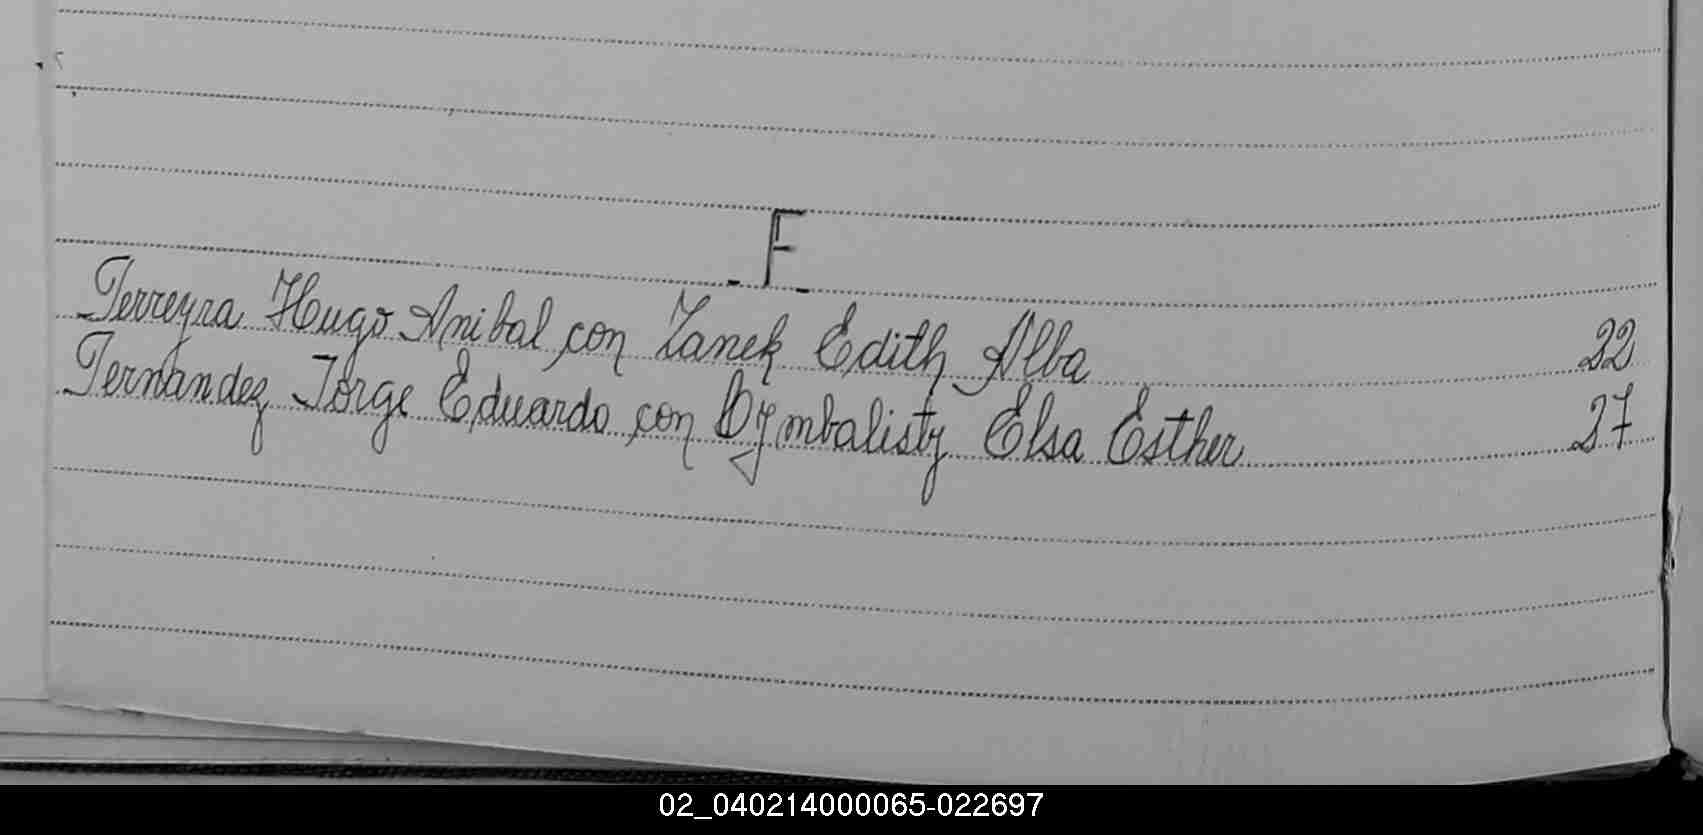 F
Ferreyra Hugo Anibal con Zanek Edith Alba 22
Fernandez Jorge Eduardo con Dymbalisty Elsa Esther 27
02_040214000065-022697